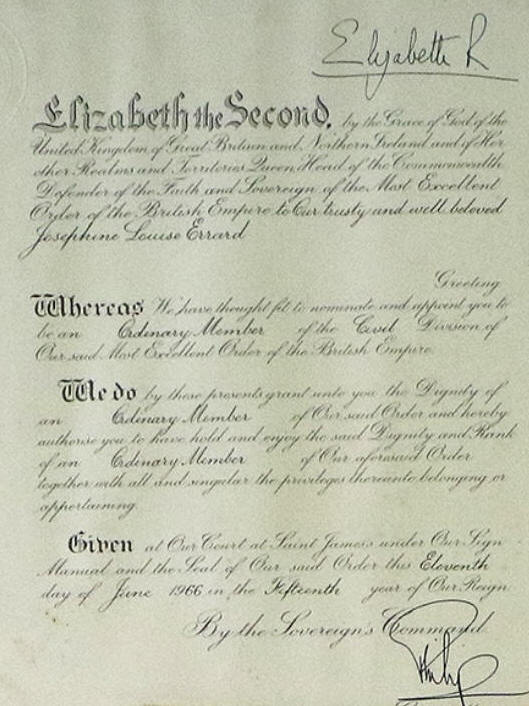 Elizabeth R
Elizabeth the Second, by the Grace of God of the
United Kingdom of Great Britain and Northern Ireland and of Her
other Realms and Territories Queen Head of the Commonwealth
Defender of the Faith and Sovereign of the Most Excellent
Order of the British Empire to Our trusty and well beloved
Josephine Louise Errard
Greeting
Whereas We have thought fit to nominate and appoint you to
be an Ordinary Member of the Civil Division of
Our said Most Excellent Order of the British Empire
We do by these presents grant unto you the Dignity of
an Ordinary Member of Our said Order and hereby
authorise you to have hold and enjoy the said Dignity and Rank
of an Ordinary Member of Our aforesaid Order
together with all and singular the privileges thereunto belonging or
appertaining.
Given at Our Court at Saint James's under Our Sign
Manual and the Seal of Our said Order this Eleventh
day of June 1966 in the Fifteenth year of Our Reign
By the Sovereign's Command.
Philip